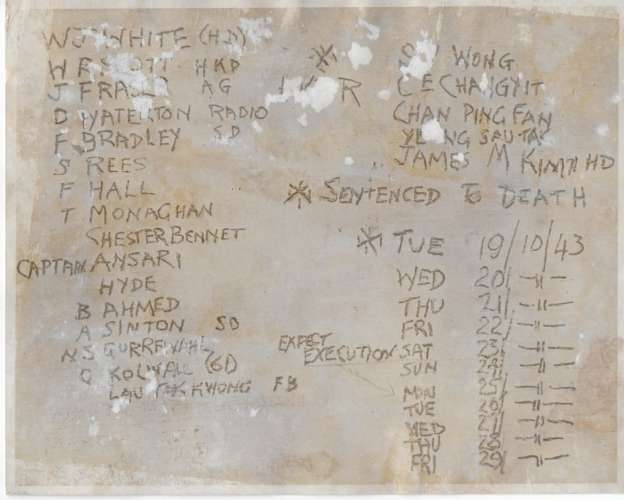 WJ WHITE (HD)
W R SCOTT HKD
J FRASER AG
D WATERTON RADIO
F BRADLEY SD
S REES
F HALL
T MONAGHAN
CHESTER BENNET
CAPTAIN ANSARI
HYDE
B AHMED
A SINTON SD
N S GURREWAHL
C KOLWALL (GD)
LAU KWONG FB
* WONG
R C E CHANGYIT
CHAN PING FAN
YEUNG SAU TAK
JAMES M KIM HD
* SENTENCED TO DEATH
* TUE 19/10/43
WED 20/ -〃-
THU 21/ -〃-
FRI 22/ -〃-
EXPECT
EXECUTION SAT 23/ -〃-
SUN 24/ -〃-
MON 25/ -〃-
TUE 26/ -〃-
WED 27/ -〃-
THU 28/ -〃-
FRI 29/ -〃-